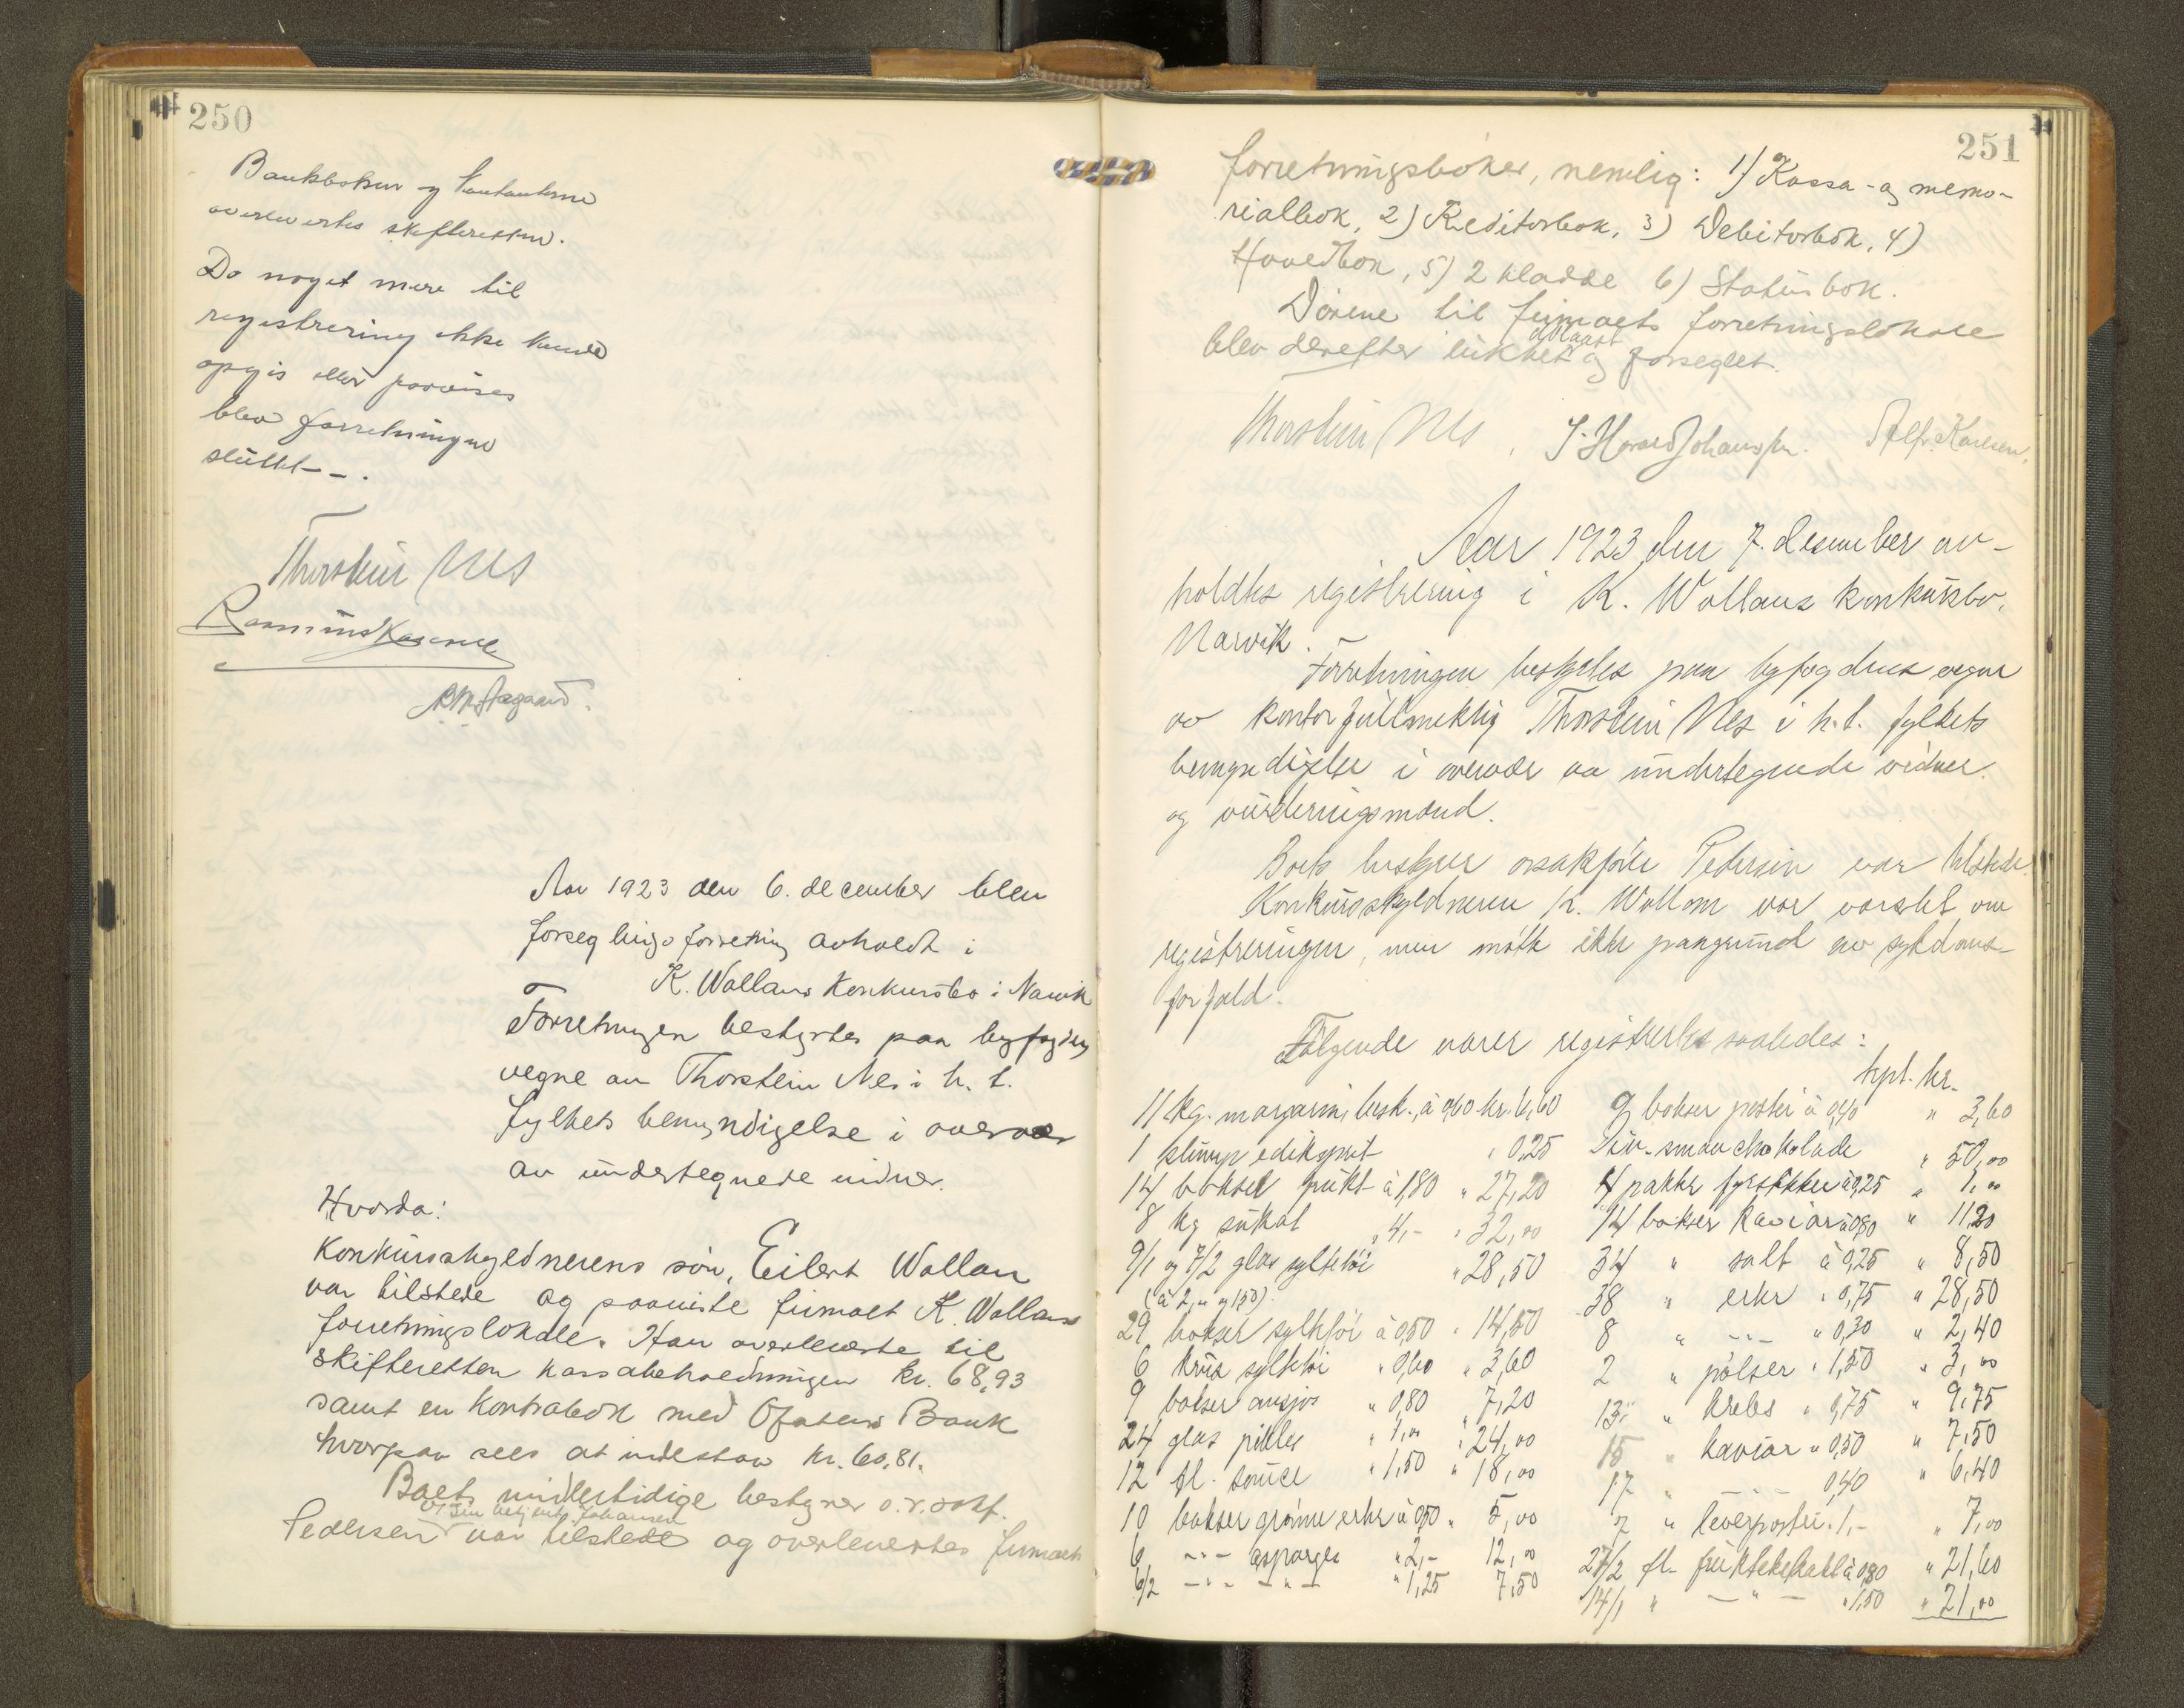 250
Bankboken og kontanterne
overlevertes skifteretten.
Da noget mere til
registrering ikke kunde
opgis eller paavises
blev forretningen
sluttet - .
Thorstein Nes
Rasmus
Aar 1923 den 6. december blev
forseglingsforretning avholdt i
K. Wollans Konkursbo i Narvik
Forretningen bestyrtes paa byfogdens
vegne av Thorstein Nes i h. t.
fylkets bemyndigelse i overvær
av undertegnede vidner.
Hvorda:
Konkursskyldnerens søn, Eilert Wollan
var tilstede og paaviste firmaet K. Wollans
forretningslokale. Han overleverte til
skifteretten kassabeholdningen kr. 68,93
samt en Kontrabok med Ofotens Bank
hvorpaa sees at indestaa kr. 60,81.
Boets midlertidige bestyrer o.r.sakf.
Pedersen var tilstede og overlevertes firmaets
251
forretningsbøker, nemlig: 1) Kassa- og memo-
rialbok, 2) Kreditorbok, 3) Debitorbok, 4)
Hovedbok, 5) 2 kladde 6) Statusbok.
Dørene til firmaets forretningslokale
avlaast
blev derefter lukket og forseglet.
Thorstein Nes, J. Harald Johansen. Alf. Karlsen.
Aar 1923 den 7. desember av-
holdtes registrering i K. Wollans konkursbo,
Narvik.
Forretningen bestyrtes paa byfogdens vegne
av kontorfullmektig Thorstein Nes i h. t. fylkets
bemyndigelse i overvær av undertegnede vidner
og vurderingsmænd.
Boets bestyrer o.r.sakfører Pedersen var tilstede.
Konkursskyldneren K. Wollan var varslet om
registreringen, men møtte ikke paagrund av sykdoms-
forfald.
Følgende varer registrertes saaledes:
trpt. kr.
11 kg. margarin, besk., à 0,60 kr. 6,60
1 edikspirit " 0,25
14 bokser frukt à 1,80 " 27,20
8 kg sukat " 4,- " 32,00
9/1 og 7/2 glas syltetøi " 28,50
(à 2,00 og 1,50)
29 bokser syltetøi à 0,50 " 14,50
6 krus syltetøi " 0,60 " 3,60
9 bokser ansjos " 0,80 " 7,20
24 glas pikles " 1,00 " 24,00
12 fl. sauce " 1,50 " 18,00
10 bokser grønne erter à 0,50 " 5,00
6 -"- asparges " 2,- 12,00
6/2 -"- -"- " 1,25 7,50
9 bokser postei à 0,40 " 3,60
Div. smaa chokolade " 50,00
4 pakker fyrstikker à 0,25 " 1,00
14 bokser kaviar à 0,80 " 11,20
34 " salt à 0,25 " 8,50
38 " erter " 0,75 " 28,50
8 " -"- " 0,30 " 2,40
2 " pølser " 1,50 " 3,00
13 " krebs " 0,75 " 9,75
15 " kaviar " 0,50 " 7,50
17 " -"- 0,40 " 6,40
7 " leverpostei " 1,- " 7,00
27/2 fl. à 0,80 " 21,60
14/1 " - " - " 1,50 " 21,00